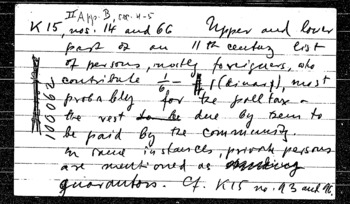 II App. B, sec. 4-5
K 15, nos. 14 and 66 Upper and lower
part of an 11th century list
of persons, mostly foreigners, who
contribute 1/6 – 1 (dinars), most
probably for the poll tax –
the rest due by them to
be paid by the community.
In some instances, private persons
are mentioned as
guarantors. Cf. K15 no. 93 and
100062